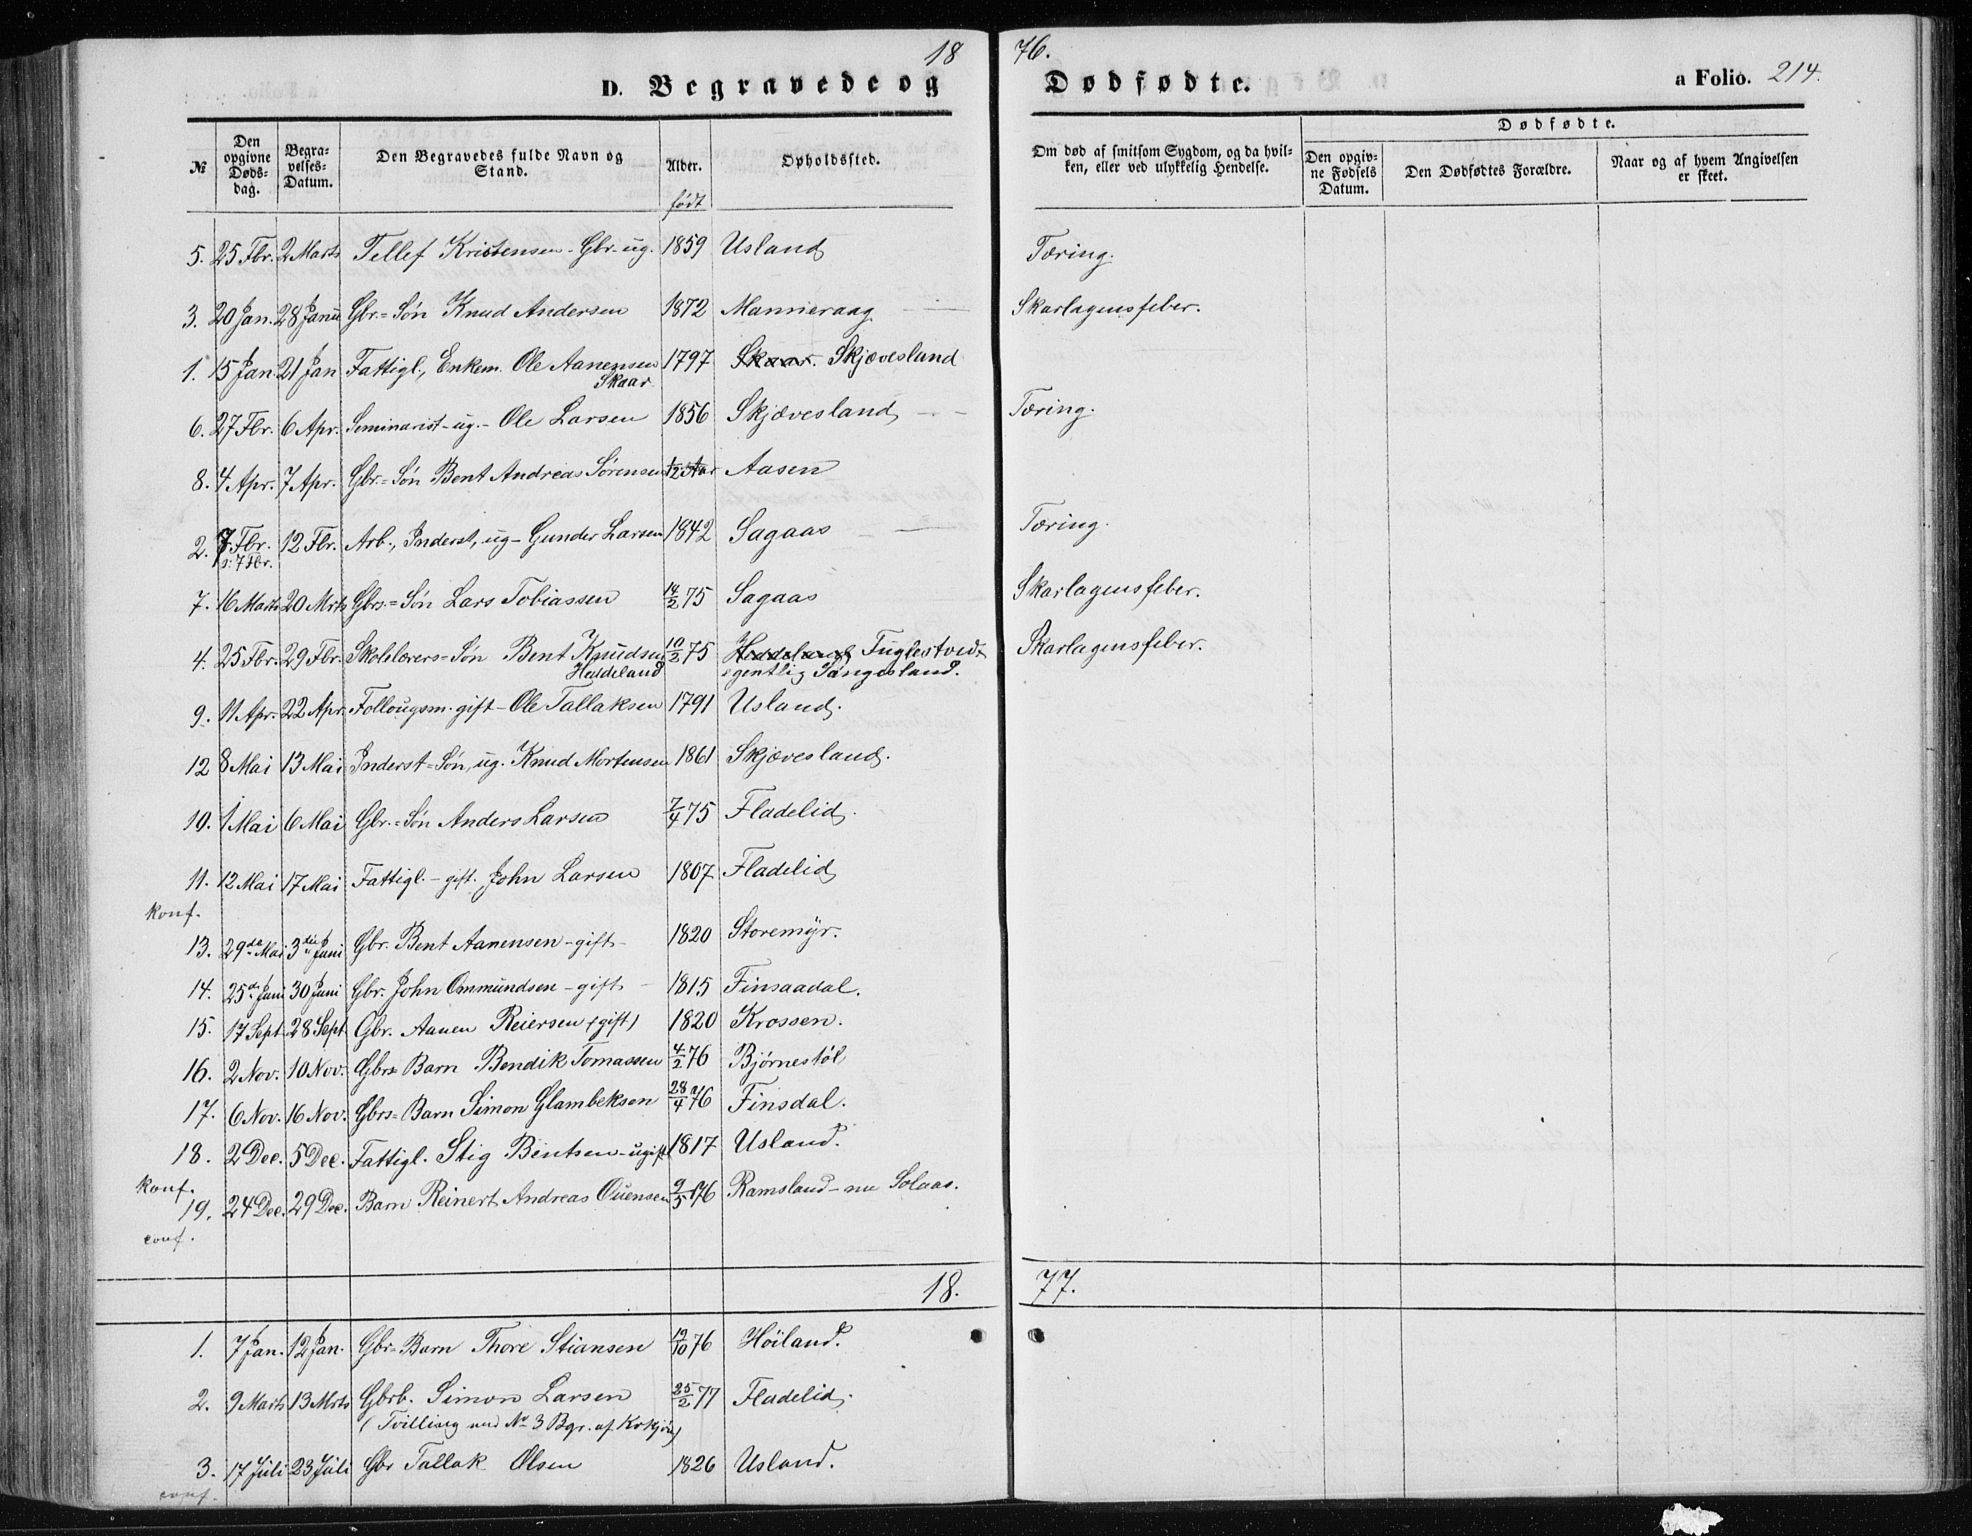 18 76.
D. Begravede og Dødfødte. a Folio. 214.
№ Den opgivne Døds-dag. Begra-velses-Datum. Den Begravedes fulde Navn og Stand. Alder. født Opholdssted. Om død af smitsom Sygdom, og da hvil-ken, eller ved ulykkelig Hendelse. Dødfødte. Den opgiv-ne Fødsels Datum. Den Dødfødtes Forældre. Naar og af hvem Angivelsen er skeet.
5. 25 Fbr. 2 Marts Tellef Kristensen - Gbr. ug. 1859 Usland Tæring.
3. 20 Jan. 28 Janu Gbr.=Søn Knud Andersen 1872 Mannieraag Skarlagensfeber.
1. 15 Jan. 21 Jan Fattigl., Enkem. Ole Aanensen 1797 Skaar. Skjævesland
Skaar
6. 27 Fbr. 6 Apr. Seminarist - ug. - Ole Larsen 1856 Skjævesland Tæring.
8. 4 Apr. 7 Apr. Gbr.=Søn Bent Andreas Sørensen 1/2 Aar Aasen
2. 7 Fbr. 12 Fbr. Arb., Inderst, ug - Gunder Larsen 1842 Sagaas Tæring.
s. 7 Fbr.
7. 16 Marts 20 Mrts Gbrs=Søn Lars Tobiassen 14/2 75 Sagaas Skarlagensfeber.
4. 25 Fbr. 29 Fbr. Skolelærers=Søn Bent Knudsen 10/2 75 Heddeland Fuglestvedt Skarlagensfeber.
Heddeland egentlig Sangesland.
9. 11 Apr. 22 Apr. Follougsm. gift - Ole Tallaksen 1791 Usland.
12 8 Mai 13 Mai Inderst=Søn, ug. Knud Mortensen 1861 Skjævesland.
10. 1 Mai 6 Mai Gbr.=Søn Anders Larsen 7/4 75 Fladelid.
11. 12 Mai 17 Mai Fattigl. - gift. John Larsen 1807 Fladelid
konf.
13. 29de Mai 3die Juni Gbr. Bent Aanensen - gift - 1820 Storemyr.
14. 25de Juni 30 Juni Gbr. John Ommundsen - gift - 1815 Finsaadal.
15. 17 Sept. 28 Sept Gbr. Aanen Reiersen (gift) 1820 Krossen.
16. 2 Nov. 10 Nov. Gbrs Barn Bendik Tomassen 4/2 76 Bjørnestøl
17. 6 Nov. 16 Nov. Gbrs=Barn Simon Glambeksen 28/4 76 Finsdal.
18. 2 Dec. 5 Dec. Fattigl. Stig Bentsen - ugift 1817 Usland.
konf.
19. 24 Dec. 29 Dec. Barn Reinert Andreas Ouensen 9/5 76 Ramsland - nu Solaas.
conf.
18. 77.
1. 7 Jan. 12 Jan. Gbr=Barn Thore Stiansen 19/10 76 Høiland.
2. 9 Marts 13 Mrts Gbrb. Simon Larsen 25/2 77 Fladelid.
(Tvilling med No 3 Bgr. af Kvkjøn)
3. 17 Juli 23 Juli Gbr Tallak Olsen 1826 Usland.
conf.